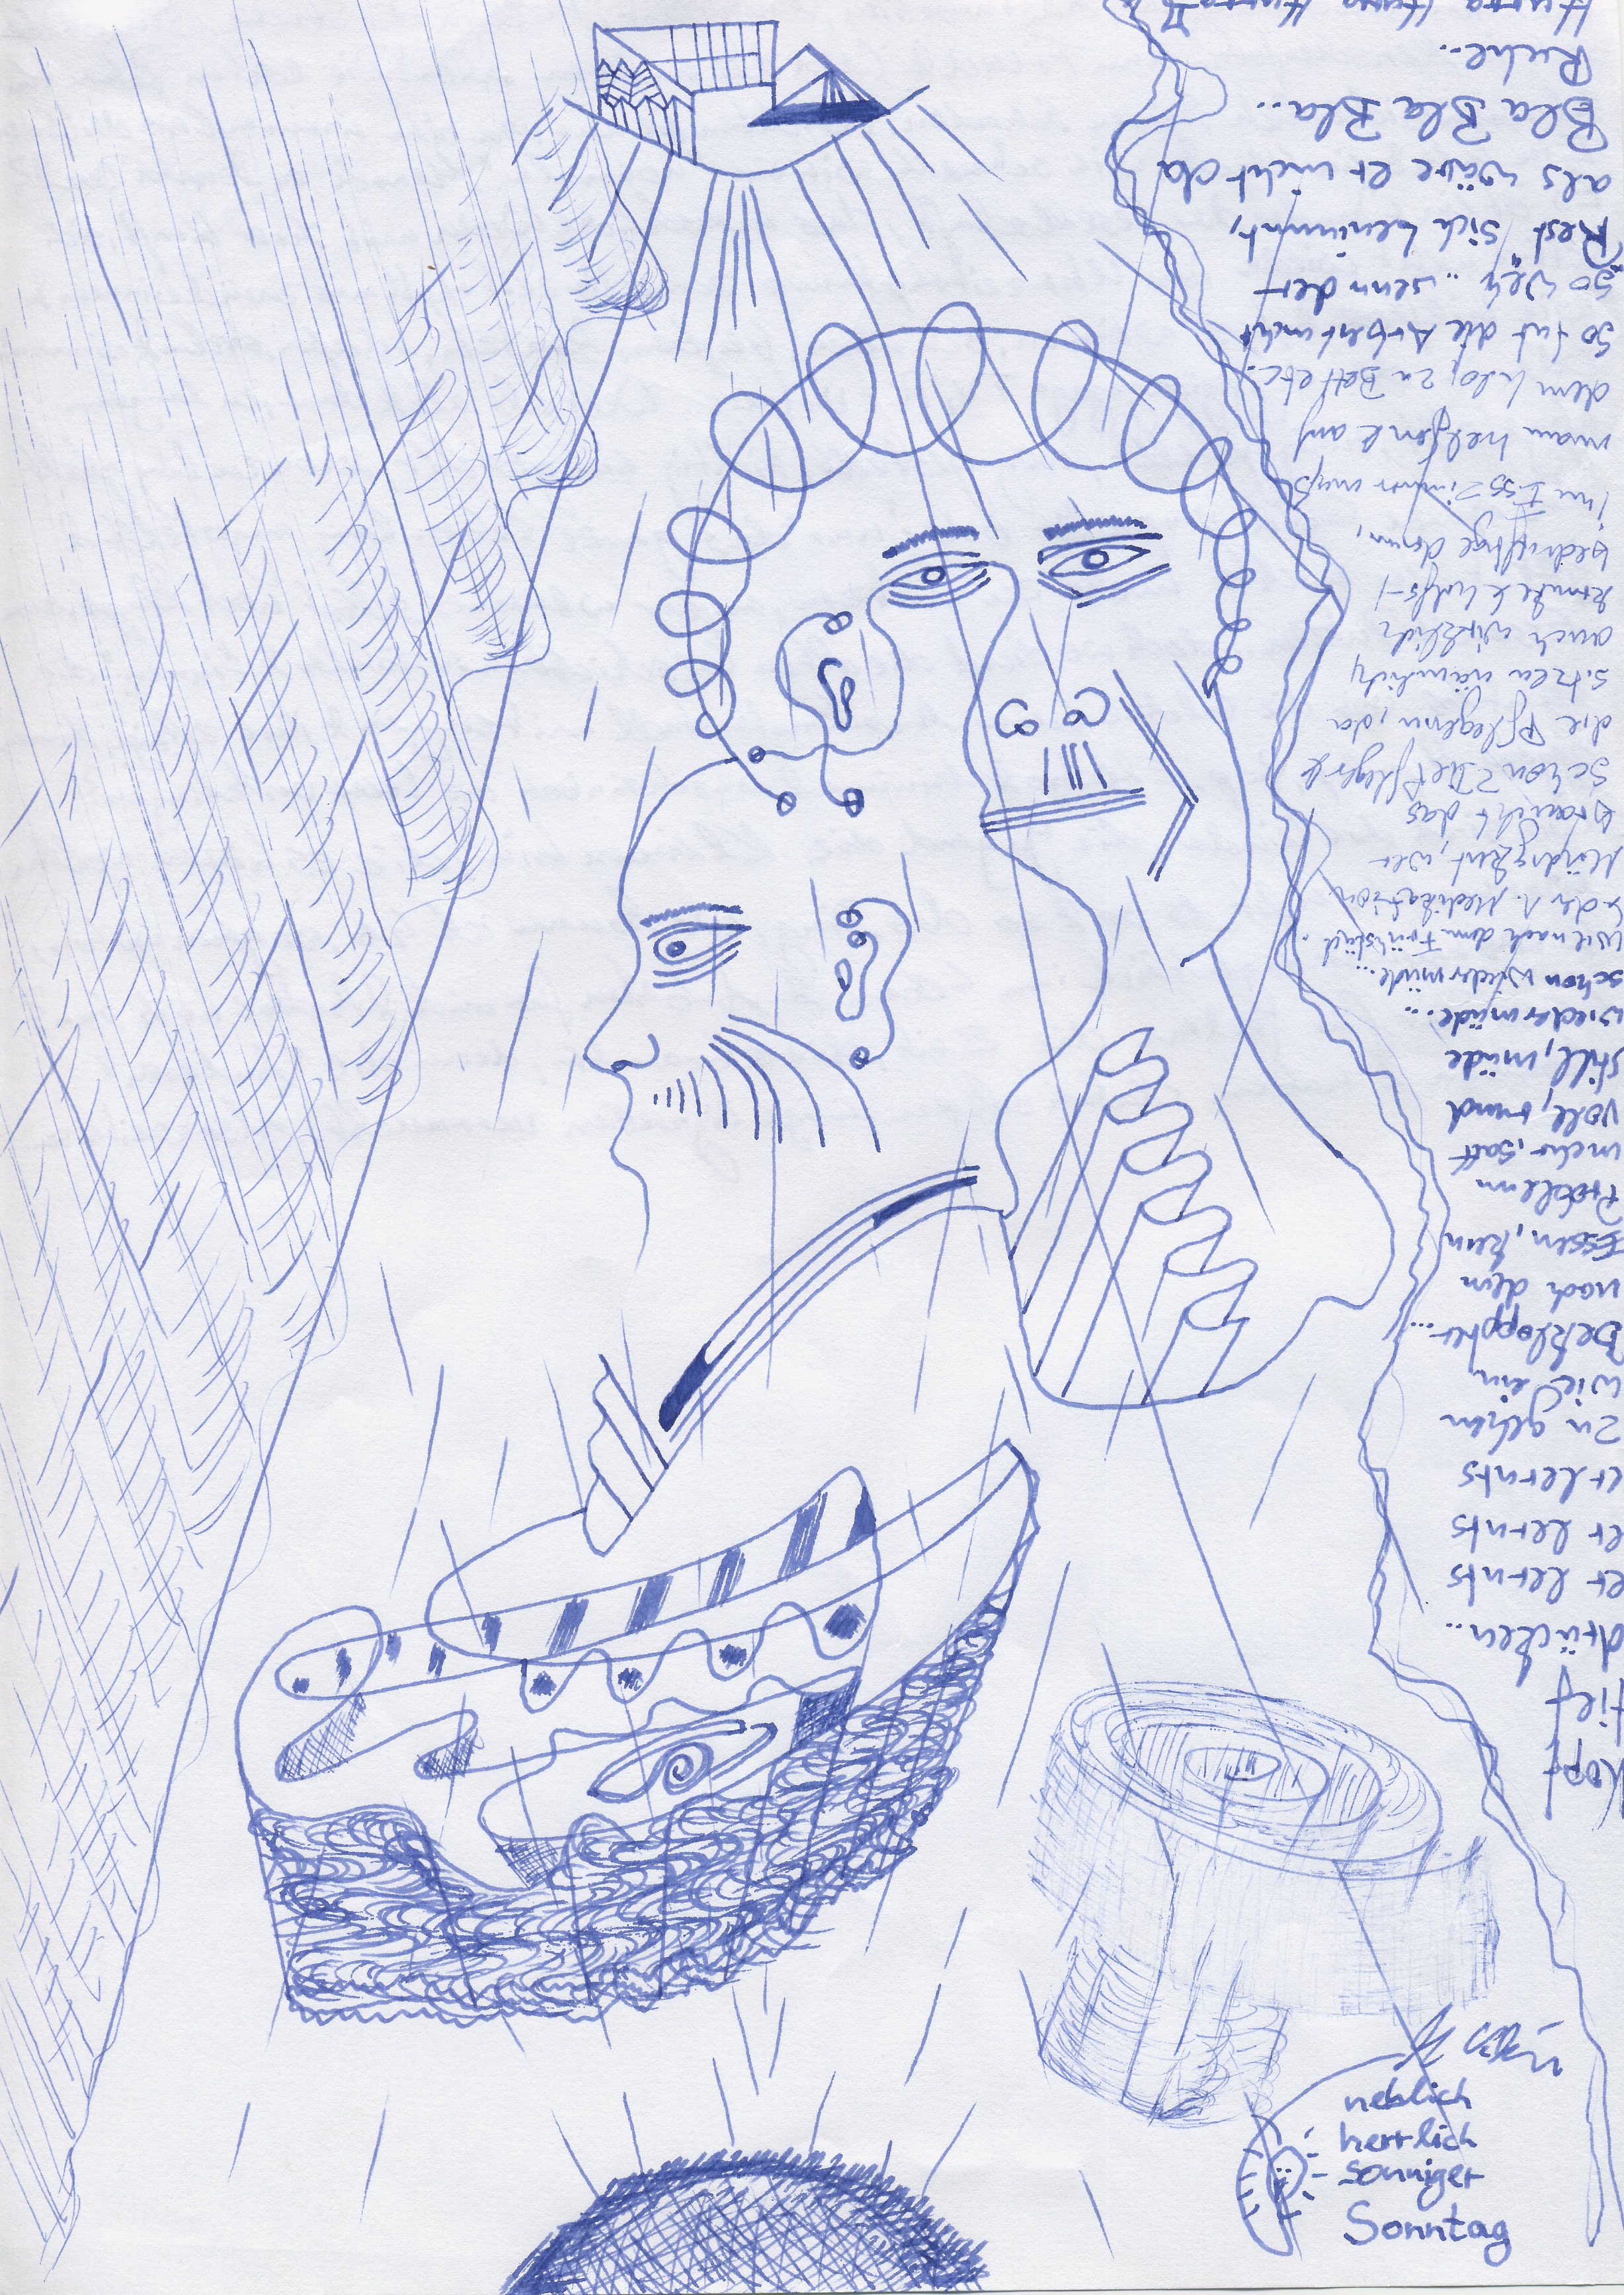 Kopf
tief
drücken...
er lernts
er lernts
er lernts
zu gehen
wie ein
Bekloppter...
nach dem
Essen, kein
Problem
mehr, satt
voll, rund
still, müde
wieder müde...
schon wieder müde...
wie nach dem Frühstück.
& der 1. Medikation
wer
braucht das
schon? Die Pflege &
die Pflegerin, da
sitzen nämlich
auch wirklich
kranke & hilfs-
bedürftige denn,
im Esszimmer muß
man helfend auf
dem Klo, zu Bett etc.
so tut die Arbeit nicht
so "weh"... wenn der
Rest sich benimmt,
als wäre er nicht da
Bla Bla Bla...
Ruhe..
Hurra Hurra Hurra
neblich
herrlich
sonniger
Sonntag